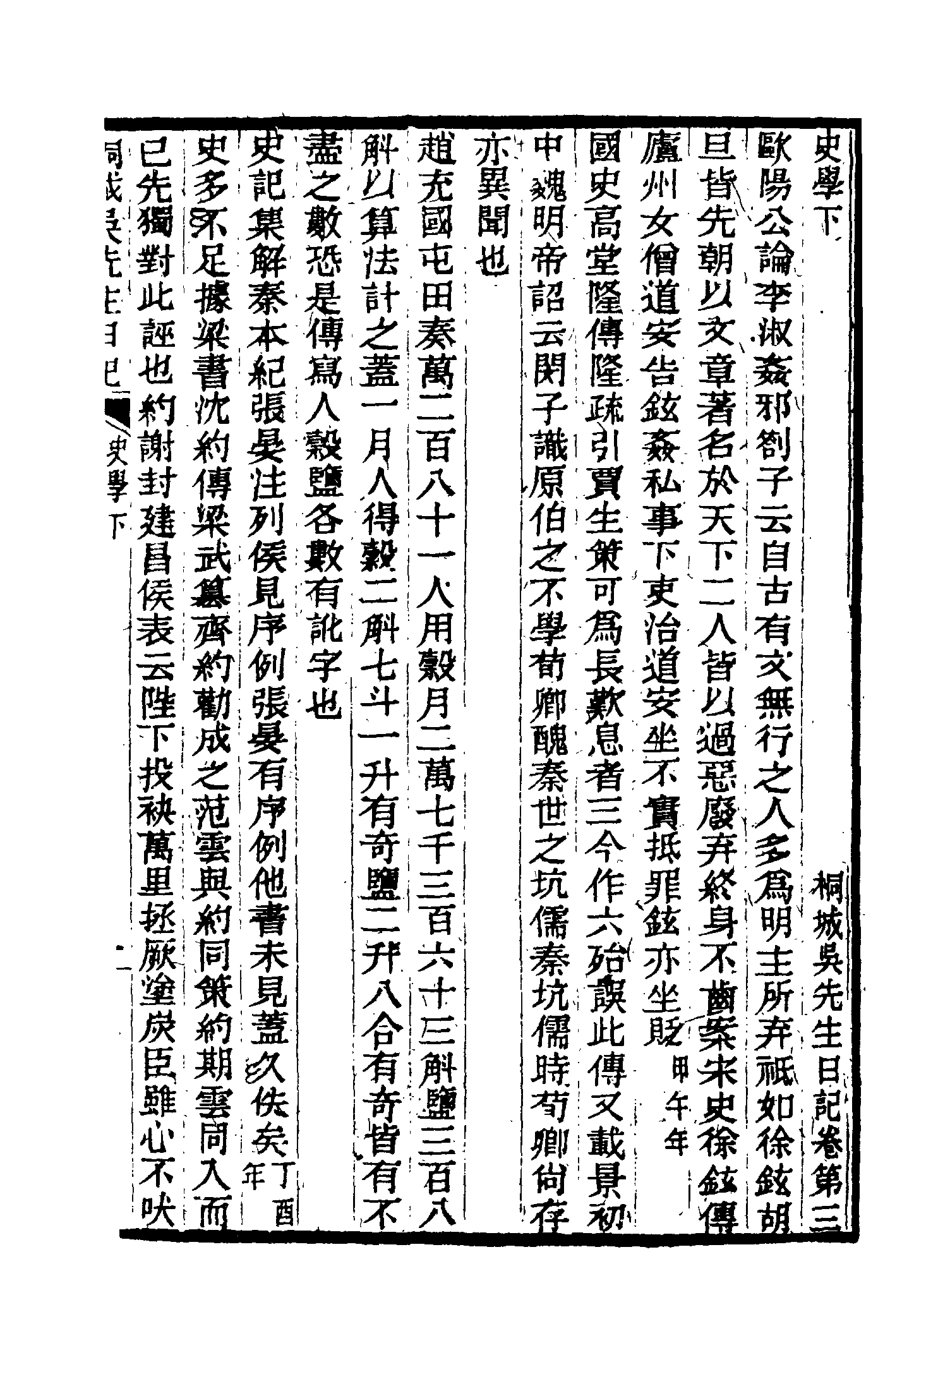 史學下　桐城吳先生日記卷第三
歐陽公論李淑姦邪劄子云自古有文無行之人多爲明主所弃祇如徐鉉胡
旦皆先朝以文章著名於天下二人皆以過惡廢弃終身不齒案宋史徐鉉傳
廬州女僧道安告鉉姦私事下吏治道安坐不實抵罪鉉亦坐貶甲午年
國史高堂隆傳隆疏引賈生策可爲長歎息者三今作六殆誤此傳又載景初
中魏明帝詔云閔子譏原伯之不學荀卿醜秦世之坑儒秦坑儒時荀卿尙存
亦異聞也
趙充國屯田奏萬二百八十一人用穀月二萬七千三百六十三斛鹽三百八
斛以算法計之蓋一月人得穀二斛七斗一升有奇鹽二升八合有奇皆有不
盡之數恐是傳寫人穀鹽各數有訛字也
史記集解秦本紀張晏注列侯見序例張晏有序例他書未見蓋久佚矣丁酉年
史多不足據梁書沈約傳梁武簒齊約勸成之范雲與約同策約期雲同入而
已先獨對此誣也約謝封建昌侯表云陛下投袂萬里拯厥塗炭臣雖心不吠
桐城吳先生日記　史學下　一